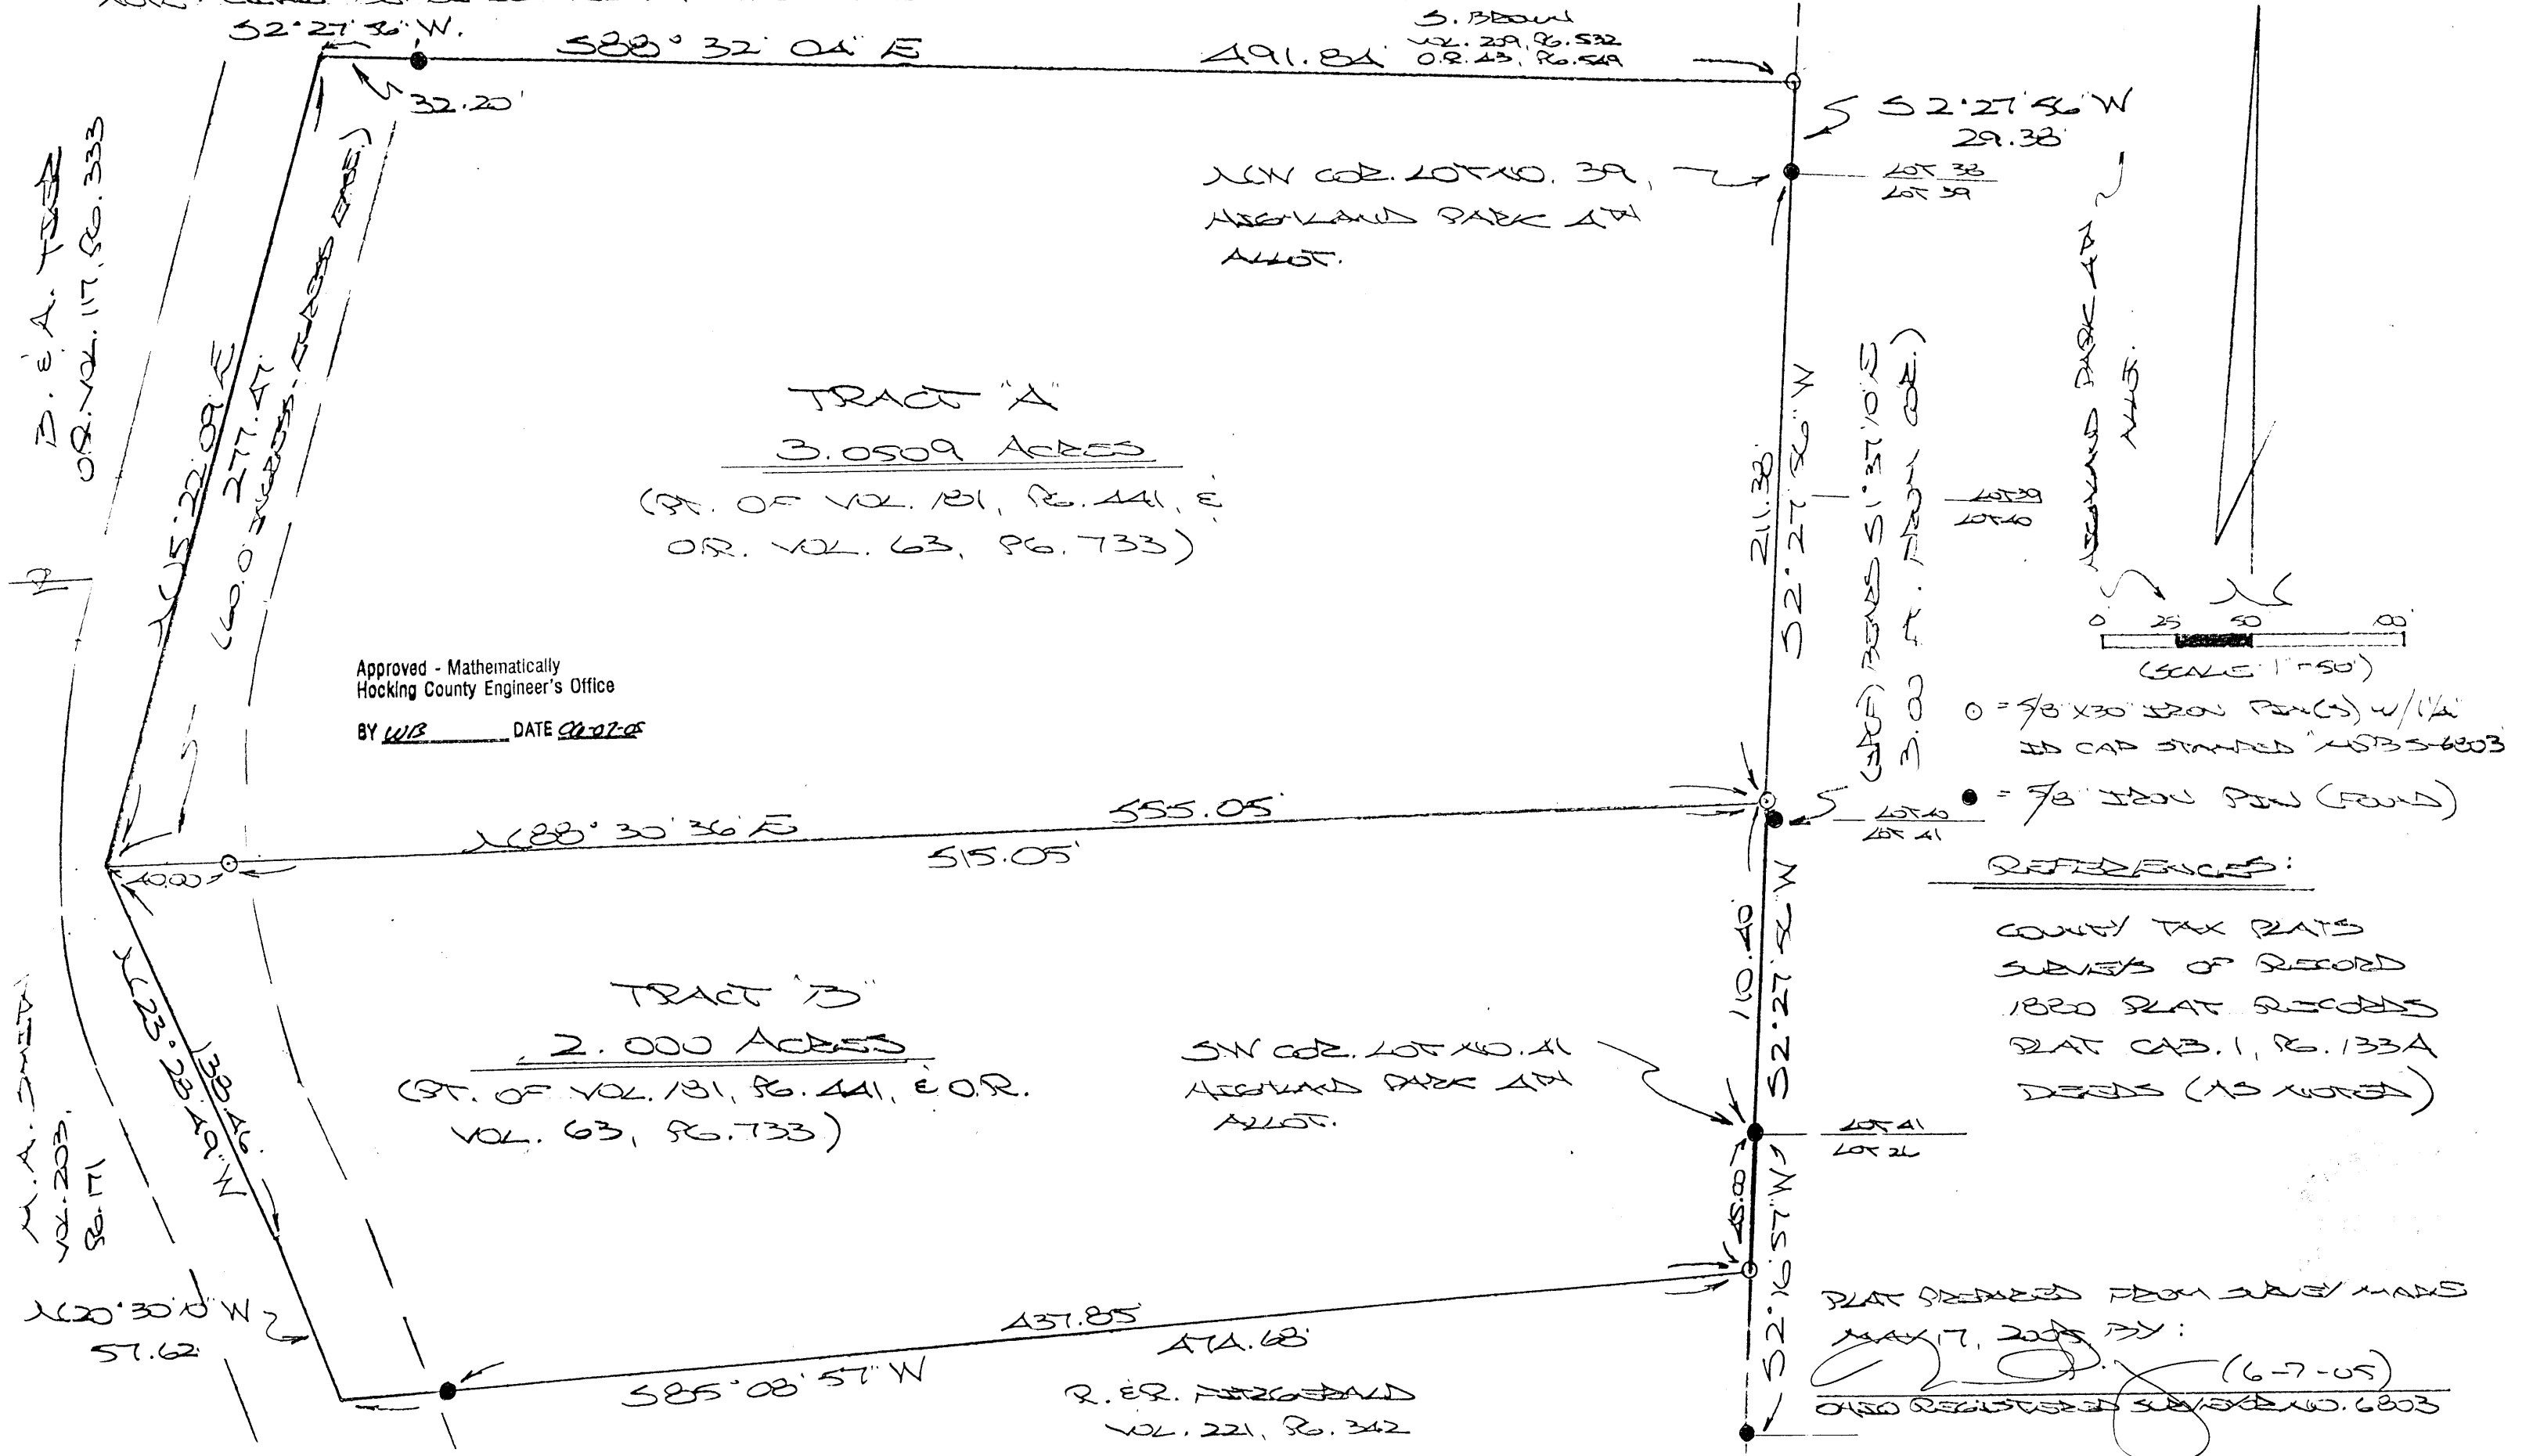 S2°27'56"W.
S88°32'04"E
491.84'
S. BROWN
VOL. 209, PG. 532
O.R. 43, PG. 549
32.20'
S2°27'56"W
29.38'
LOT 38
LOT 39
NW COR. LOT NO. 39,
HIGHLAND PARK 4TH
ALLOT.
O.R. VOL. 117, PG. 333
N15°22'09"E
277.47'
(60.0' INGRESS-EGRESS EASE.)
TRACT "A"
3.0509 ACRES
(PT. OF VOL. 181, PG. 441, &
O.R. VOL. 63, PG. 733)
211.38'
S2°27'56"W
(IPF) BEARS S1°37'10"E
3.00 FT. FROM COR.)
LOT 39
LOT 40
HIGHLAND PARK 4TH
ALLOT.
N
0 25 50 100'
(SCALE: 1"=50')
⊙ = 5/8"X30" IRON PIN(S) W/1 1/4"
ID CAP STAMPED 6803
● = 5/8" IRON PIN (FOUND)
Approved - Mathematically
Hocking County Engineer's Office
BY WB DATE 06-07-05
N88°30'36"E
555.05'
515.05'
40.00'
LOT 40
LOT 41
REFERENCES:
COUNTY TAX PLATS
SURVEYS OF RECORD
1880 PLAT RECORDS
PLAT CAB. 1, PG. 133A
DEEDS (AS NOTED)
110.40
S2°27'56"W
TRACT "B"
2.000 ACRES
(PT. OF VOL. 181, PG. 441, & O.R.
VOL. 63, PG. 733)
SW COR. LOT NO. 41
HIGHLAND PARK 4TH
ALLOT.
LOT 41
LOT 26
M. A. SMITH
VOL. 203,
PG. 171
138.46'
N23°28'49"W
N20°30'10"W
57.62'
45.00'
S2°16'57"W
437.85'
474.68'
S85°08'57"W
R. & R. FITZGERALD
VOL. 221, PG. 342
PLAT PREPARED FROM SURVEY MADE
MAY 17, 2005 BY:
(6-7-05)
OHIO REGISTERED SURVEYOR NO. 6803